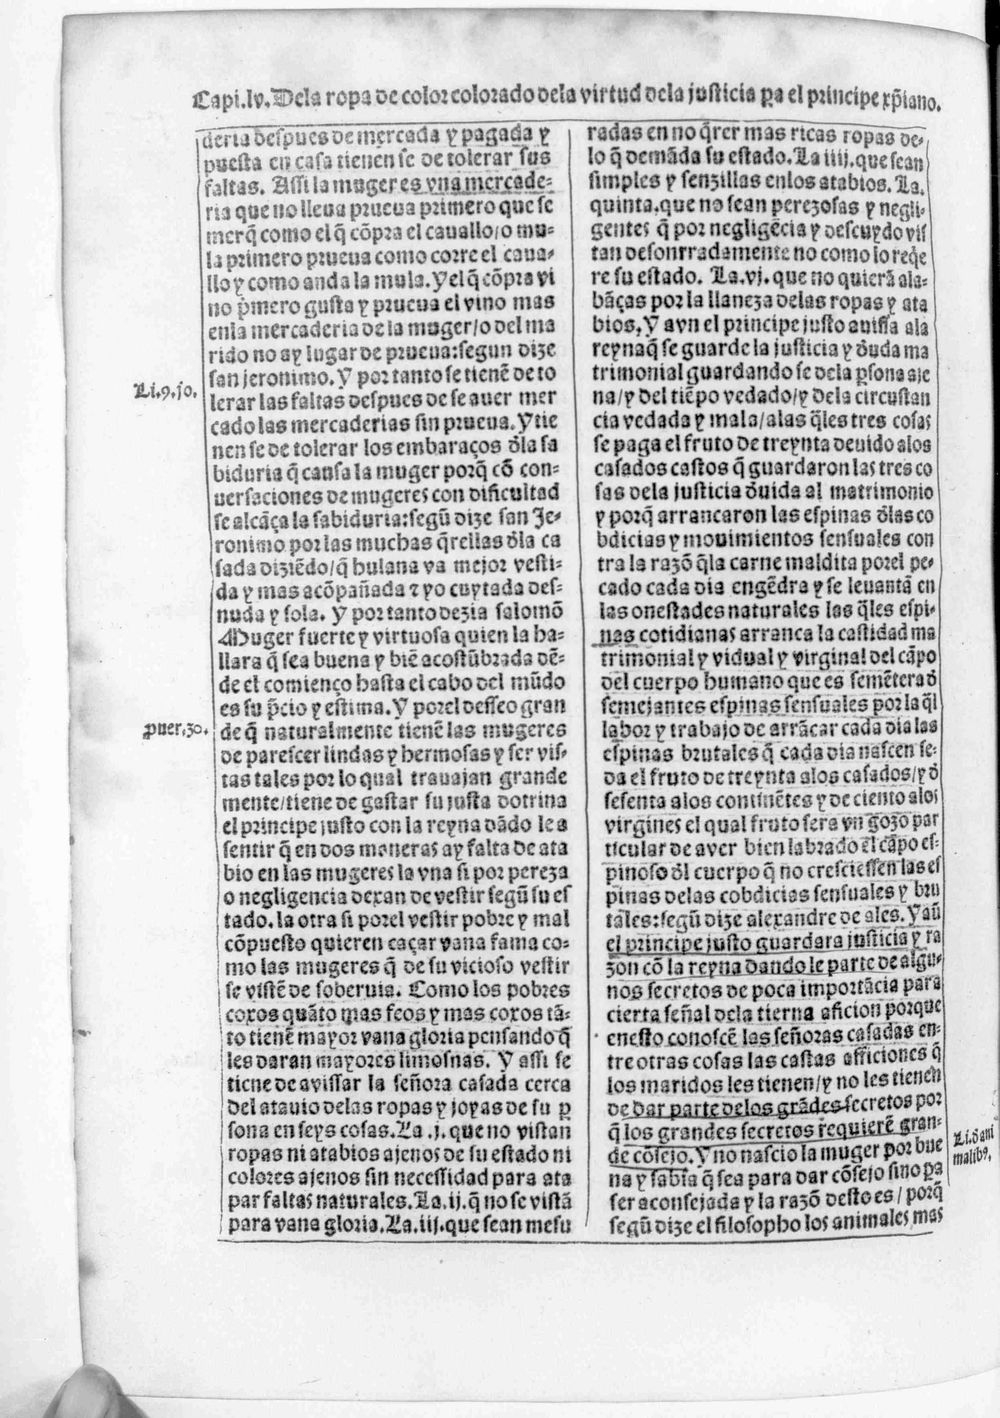 Capi.lv. Dela ropa de color colorado dela virtud dela justicia p̱a el principe xp̄iano.
deria despues de mercada y pagada y
puesta en casa tienen se de tolerar sus
faltas. Assi la muger es vna mercade-
ria que no lleua prueua primero que se
merq̄ como el q̄ cōpra el cauallo/o mu-
la primero prueua como corre el caua-
llo y como anda la mula. Y el q̄ cōpra vi
no p̄mero gusta y prueua el vino mas
enla mercaderia de la muger/o del ma
rido no ay lugar de prueua: segun dize
san jeronimo. Y por tanto se tienē de to
Li.9.jo.
lerar las faltas despues de se auer mer
cado las mercaderias sin prueua. Y tie
nen se de tolerar los embaraços d̄la sa
biduria q̄ causa la muger porq̄ cō con-
uersaciones de mugeres con dificultad
se alcāça la sabiduria: segū dize san Je-
ronimo por las muchas q̄rellas d̄la ca
sada diziēdo/q̄ hulana va mejor vesti-
da y mas acōpañada ⁊ yo cuytada des-
nuda y sola. Y por tanto dezia salomō
Muger fuerte y virtuosa quien la ha-
llara q̄ sea buena y biē acostūbrada dē-
de el comienço hasta el cabo del mūdo
es su p̄cio y estima. Y por el desseo gran
ꝓuer.30.
de q̄ naturalmente tienē las mugeres
de parescer lindas y hermosas y ser vis-
tas tales por lo qual trauajan grande
mente/tiene de gastar su justa dotrina
el principe justo con la reyna dādo le a
sentir q̄ en dos maneras ay falta de ata
bio en las mugeres la vna si por pereza
o negligencia dexan de vestir segū su es
tado. la otra si por el vestir pobre y mal
cōpuesto quieren caçar vana fama co-
mo las mugeres q̄ de su vicioso vestir
se vistē de soberuia. Como los pobres
coxos quāto mas feos y mas coxos tā-
to tienē mayor vana gloria pensando q̄
les daran mayores limosnas. Y assi se
tiene de avissar la señora casada cerca
del atauio delas ropas y joyas de su p̱
sona en seys cosas. La .j. que no vistan
ropas ni atabios ajenos de su estado ni
colores ajenos sin necessidad para ata
par faltas naturales. La .ij. q̄ no se vistā
para vana gloria. La .iij. que sean mesu
radas en no q̄rer mas ricas ropas de-
lo q̄ demāda su estado. La iiij. que sean
simples y senzillas enlos atabios. La.
quinta. que no sean perezosas y negli-
gentes q̄ por negligēcia y descuydo vis
tan desonrradamente no como lo req̄e
re su estado. La .vj. que no quierā ala-
bāças por la llaneza delas ropas y ata
bios. Y avn el principe justo auissa ala
reyna q̄ se guarde la justicia y d̄uda ma
trimonial guardando se dela p̱sona aje
na/y del tiēpo vedado/y dela circustan
cia vedada y mala/alas q̄les tres cosas
se paga el fruto de treynta deuido alos
casados castos q̄ guardaron las tres co
sas dela justicia d̄uida al matrimonio
y porq̄ arrancaron las espinas d̄las co
bdicias y mouimientos sensuales con
tra la razō q̄la carne maldita por el pe-
cado cada dia engēdra y se leuantā en
las onestades naturales las q̄les espi-
nas cotidianas arranca la castidad ma
trimonial y vidual y virginal del cāpo
del cuerpo humano que es semētera d̄
semejantes espinas sensuales por la q̄l
labor y trabajo de arrācar cada dia las
espinas brutales q̄ cada dia nascen se-
da el fruto de treynta alos casados/y d̄
sesenta alos continētes y de ciento alos
virgines el qual fruto sera vn gozo par
ticular de aver bien labrado el cāpo es-
pinoso d̄l cuerpo q̄ no cresciessen las es
pinas delas cobdicias sensuales y bru
tales: segū dize alexandre de ales. Y aū
el principe justo guardara justicia y ra
zon cō la reyna dando le parte de algu-
nos secretos de poca importācia para
cierta señal dela tierna aficion porque
enesto conoscē las señoras casadas en-
tre otras cosas las castas afficiones q̄
los maridos les tienen/y no les tienen
de dar parte delos grādes secretos por
q̄ los grandes secretos requierē gran-
de cōsejo. Y no nascio la muger por bue
Li.d̄ ani
malib9.
na y sabia q̄ sea para dar cōsejo sino p̱a
ser aconsejada y la razō desto es/porq̄
segū dize el filosopho los animales mas